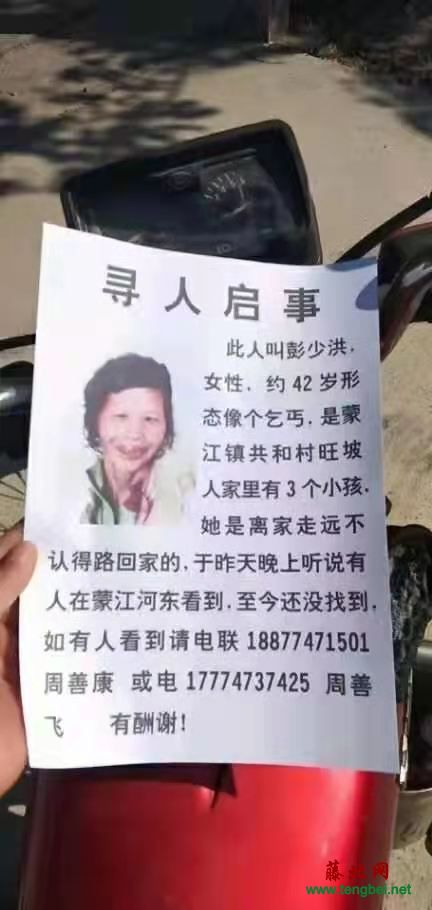 寻人启事
此人叫彭少洪,
女性, 约42岁形
态像个乞丐, 是蒙
江镇共和村旺坡
人家里有3个小孩,
她是离家走远不
认得路回家的, 于昨天晚上听说有
人在蒙江河东看到, 至今还没找到,
如有人看到请电联 18877471501
周善康 或电 17774737425 周善
飞 有酬谢!
藤北网
www.tengbei.net